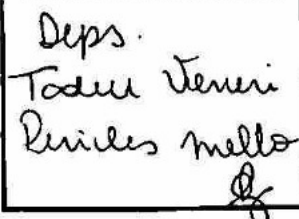 Deps.
Tadeu Veneri
Péricles Mello